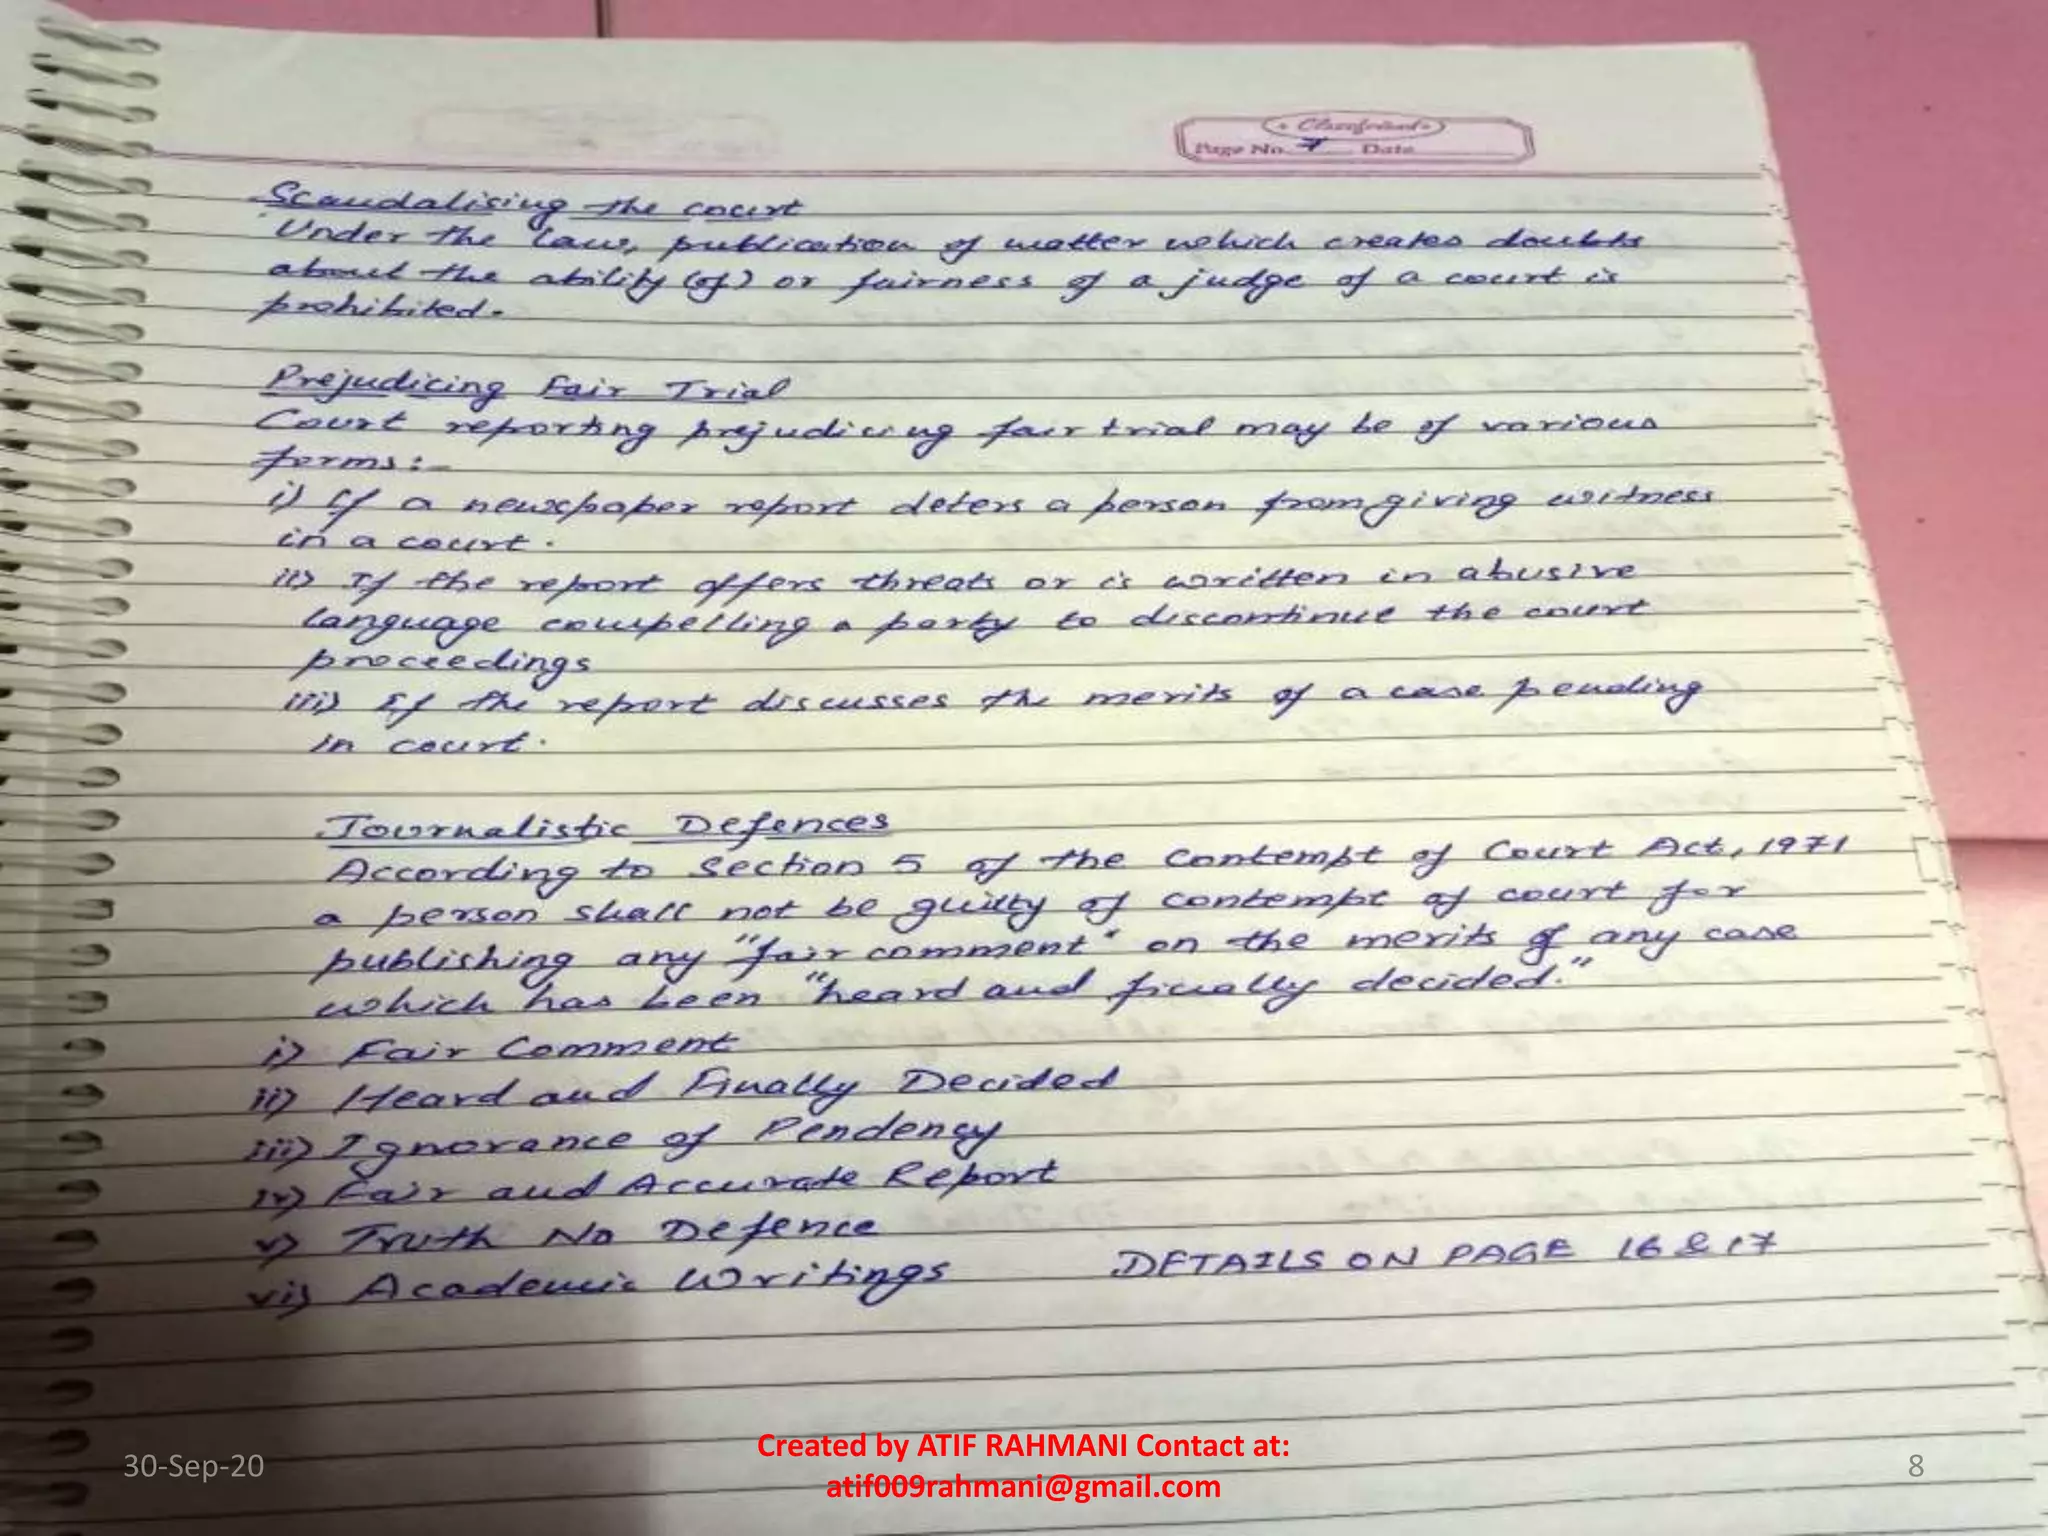 Classfriend
Page No. 7 Date
Scandalising the court
Under the law, publication of matter which creates doubts
about the ability (of) or fairness of a judge of a court is
prohibited.
Prejudicing Fair Trial
Court reporting prejudicing fair trial may be of various
forms:-
i) If a newspaper report deters a person from giving witness
in a court.
ii) If the report offers threats or is written in abusive
language compelling a party to discontinue the court
proceedings
iii) If the report discusses the merits of a case pending
in court.
Journalistic Defences
According to Section 5 of the Contempt of Court Act, 1971
a person shall not be guilty of contempt of court for
publishing any "fair comment" on the merits of any case
which has been "heard and finally decided."
i) Fair Comment
ii) Heard and Finally Decided
iii) Ignorance of Pendency
iv) Fair and Accurate Report
v) Truth No Defence
vi) Academic Writings DETAILS ON PAGE 16 & 17
30-Sep-20
Created by ATIF RAHMANI Contact at:
atif009rahmani@gmail.com
8